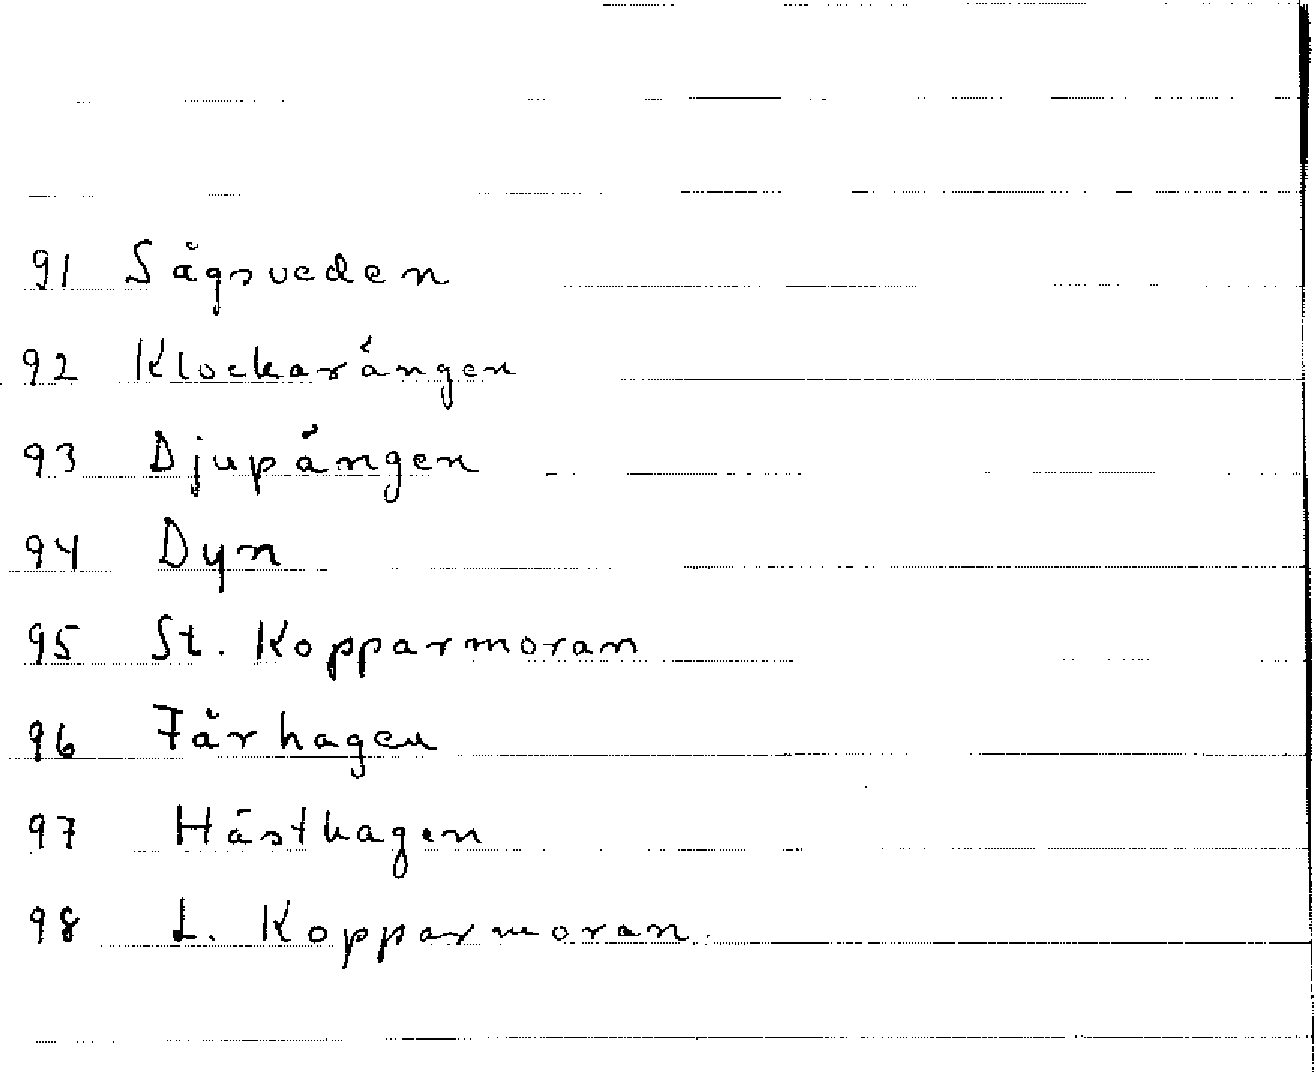 91 Sågsveden
92 Klockarängen
93 Djupängen
94 Dyn
95 St. Kopparmoran
96 Fårhagen
97 Hästhagen
98 L. Kopparmoran